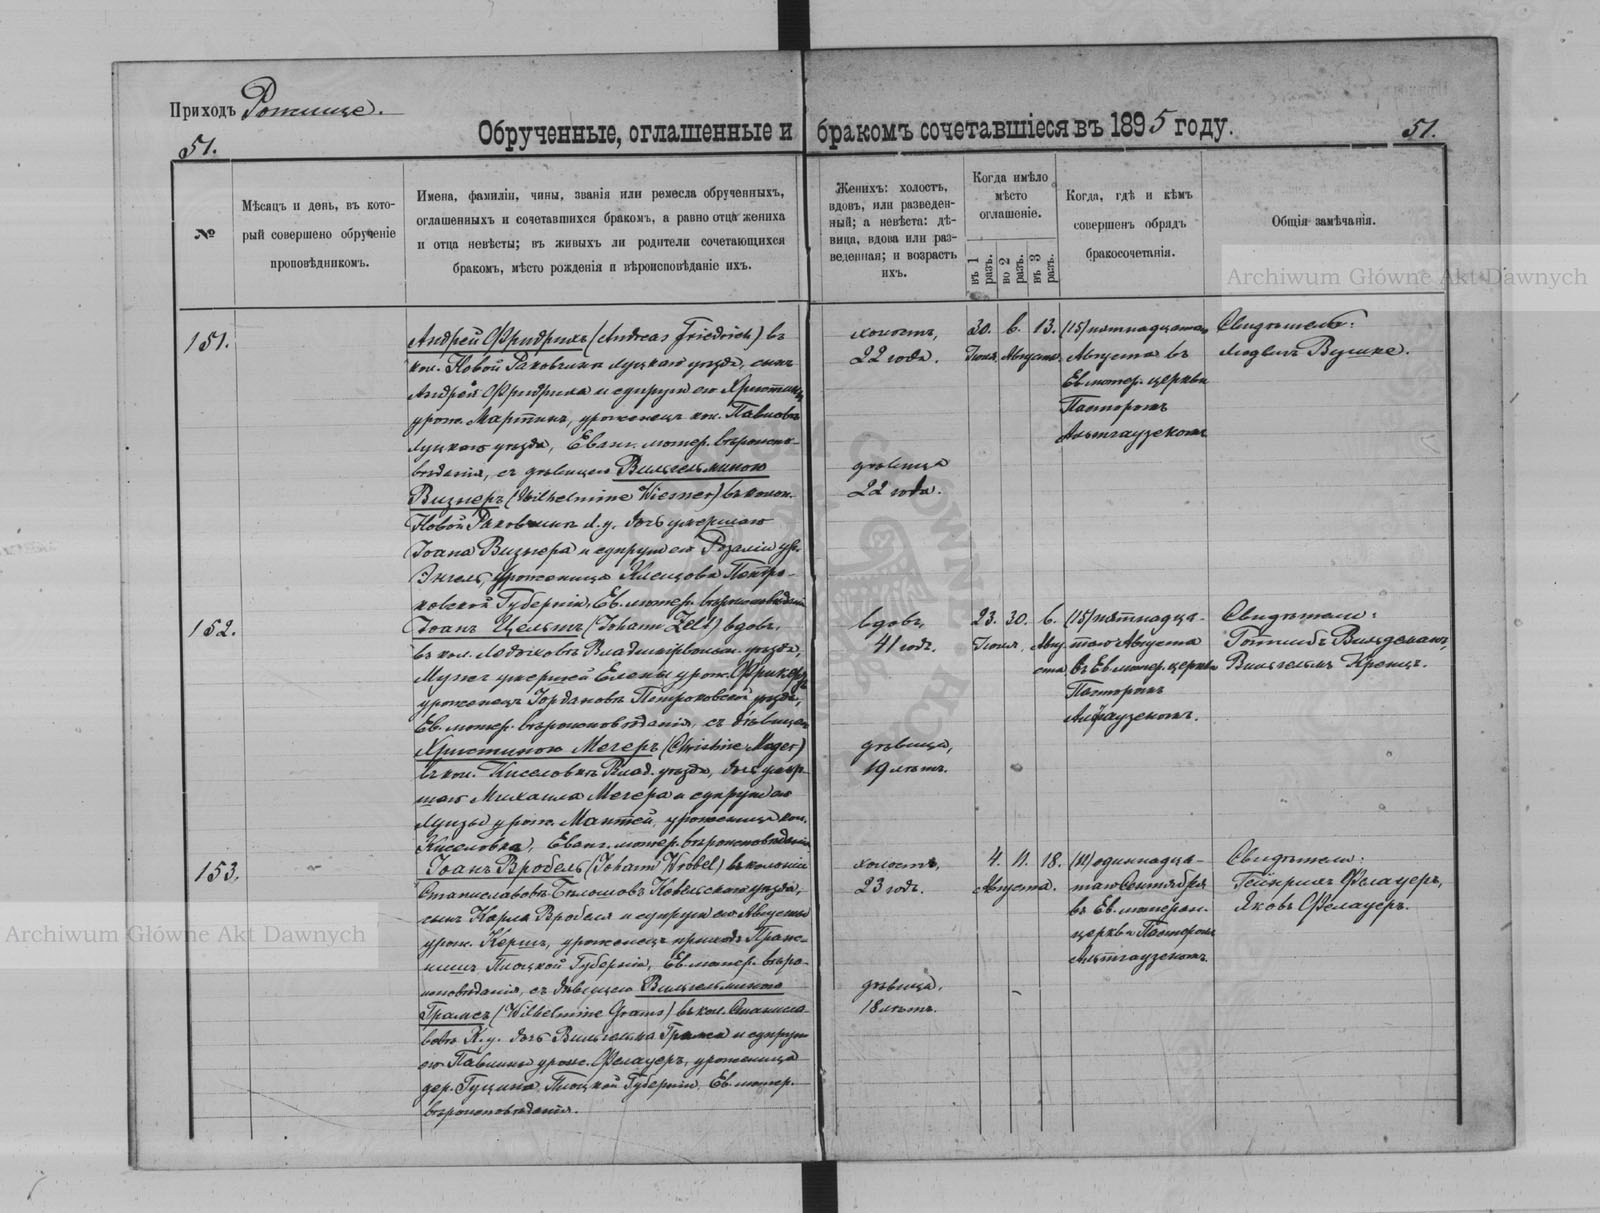 Приходъ Рожище.
Обрученные, оглашенные и бракомъ сочетавшіеся въ 1895 году.
51.
51.
№
Мѣсяцъ и день, въ кото-
рый совершено обрученіе
проповѣдникомъ.
Имена, фамиліи, чины, званія или ремесла обрученныхъ,
оглашенныхъ и сочетавшихся бракомъ, а равно отца жениха
и отца невѣсты; въ живыхъ ли родители сочетающихся
бракомъ, мѣсто рожденія и вѣроисповѣданіе ихъ.
Женихъ: холостъ,
вдовъ, или разведен-
ный; а невѣста: дѣ-
вица, вдова или раз-
веденная; и возрастъ
ихъ.
Когда имѣло
мѣсто
оглашеніе.
въ 1 разъ.
во 2 разъ.
въ 3 разъ.
Когда, гдѣ и кѣмъ
совершенъ обрядъ
бракосочетанія.
Общія замѣчанія.
151.
Андрей Фридрихъ (Andreas Friedrich) въ
кол. Новой Раковщинѣ луцкаго уѣзда, сынъ
Андрея Фридриха и супруги его Христины
урож. Мартинъ, уроженецъ кол.
луцкаго уѣзда, Еванг. лютер. вѣроиспо-
вѣданія, съ дѣвицею Вильгельминою
Визнеръ (Wilhelmine Wiesner) въ колон.
Новой Раковщинѣ л.у. дочь умершаго
Іоана Визнера и супруги его Розаліи ур.
Энгель, уроженица Клещова Петро-
ковской Губерніи, Ев. лютер. вѣроисповѣданія
холостъ,
22 года.
дѣвица
22 года.
30. 6. 13.
Іюля, Августа.
(15) пятнадцатаго
Августа въ
Ев. лютер. церкви
Пасторомъ
Альтгаузеномъ
Свидѣтель:
Людвигъ Вушке.
152.
Іоанъ Цельтъ (Johann Zelt) вдовъ,
въ кол. Владимірволын. уѣзда,
Мужъ умершей Елены урож.
уроженецъ Іордановъ Петроковской уѣзда,
Ев. лютер. вѣроисповѣданія, съ дѣвицею
Христиною Мегеръ (Christine Meger)
въ кол. Киселовкѣ Влад. уѣзда, дочь умер-
шаго Михаила Мегера и супруги его
Луизы урож. Мантей, уроженица кол.
Киселовка, Еванг. лютер. вѣроисповѣданія
вдовъ,
41 годъ.
дѣвица,
19 лѣтъ.
23. 30. 6.
Іюля, Авгу-
ста
(15) пятнадца-
таго Августа
въ Ев. лютер. церкви
Пасторомъ
Альтгаузеномъ.
Свидѣтели:
Готлибъ Вильдеманъ,
Вильгельмъ Кренцъ.
153.
Іоанъ Вробель (Johann Wrobel) въ колоніи
Станиславовъ Ковельскаго уѣзда,
сынъ Карла Вробеля и супруги его Августы
урож. Кершъ, уроженецъ прихода Прас-
нышъ Плоцкой Губерніи, Ев. лютер. вѣро-
исповѣданія, съ дѣвицею Вильгельминою
Грамсъ (Wilhelmine Grams) въ кол. Станисла-
вовъ К.у. дочь Вильгельма Грамса и супруги
его Павлины урож. Фелауеръ, уроженица
дер. Гуцина, Плоцкой Губерніи, Ев. лютер.
вѣроисповѣданія.
холостъ,
23 годъ.
дѣвица.
18 лѣтъ.
4. 11. 18.
Августа.
(11) одиннадца-
таго Сентября
въ Ев. лютеран.
церкви Пасторомъ
Альтгаузеномъ.
Свидѣтели:
Гейнрихъ Фелауеръ,
Яковъ Фелауеръ.
Archiwum Główne Akt Dawnych
Archiwum Główne Akt Dawnych